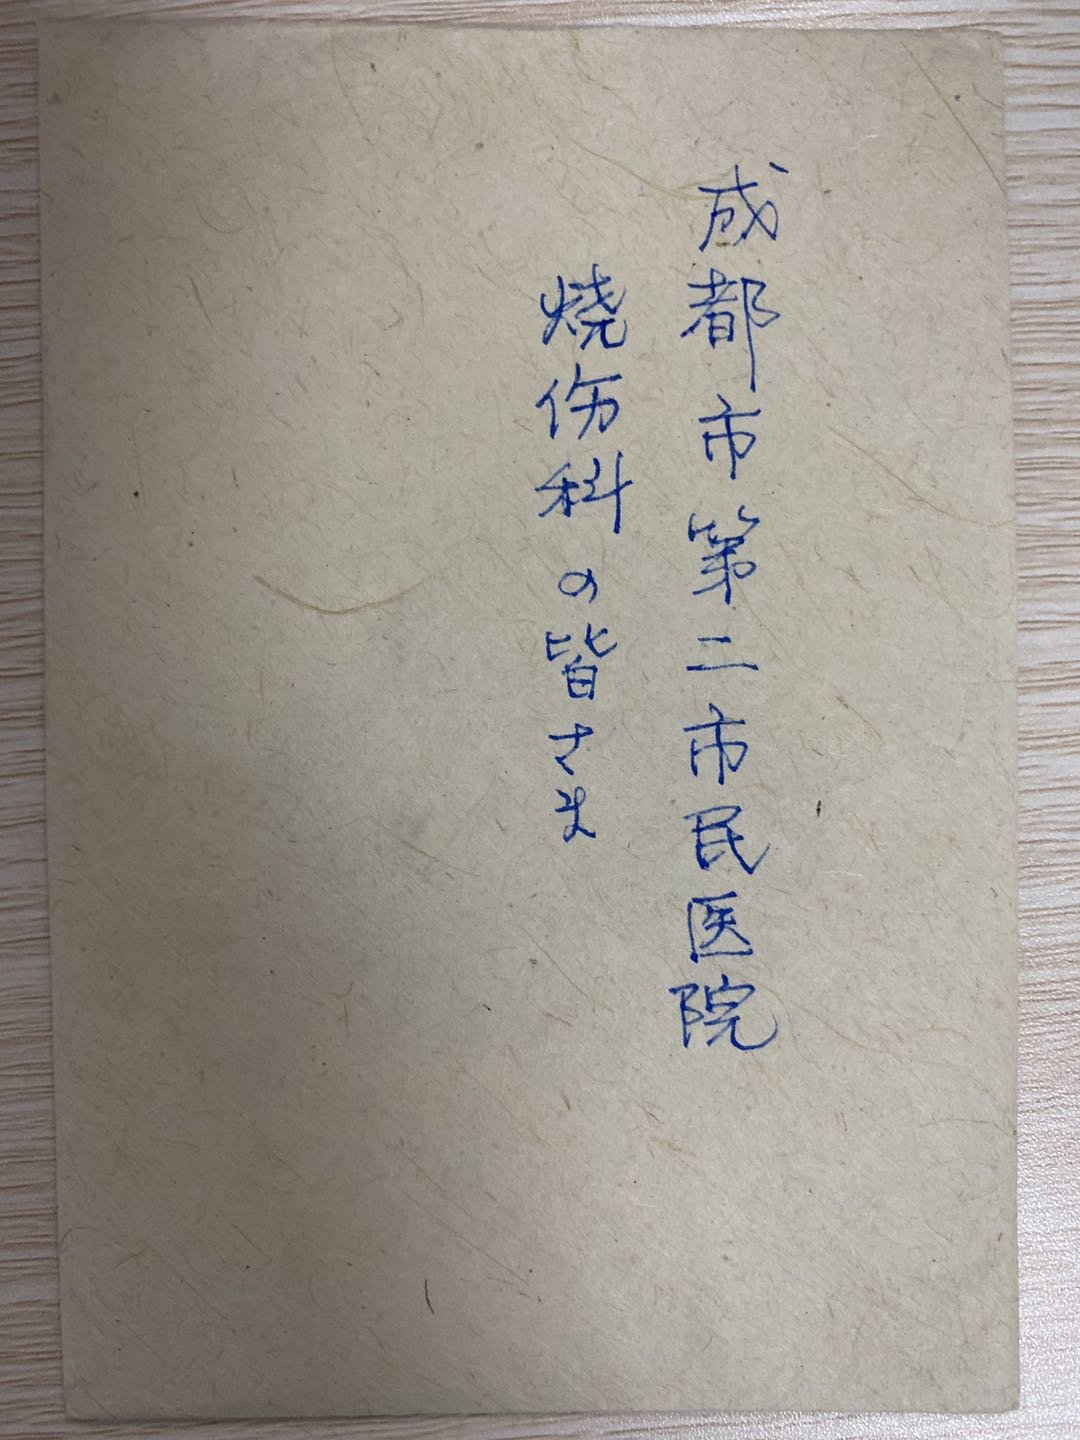 成都市第二市民医院
烧伤科の皆さま